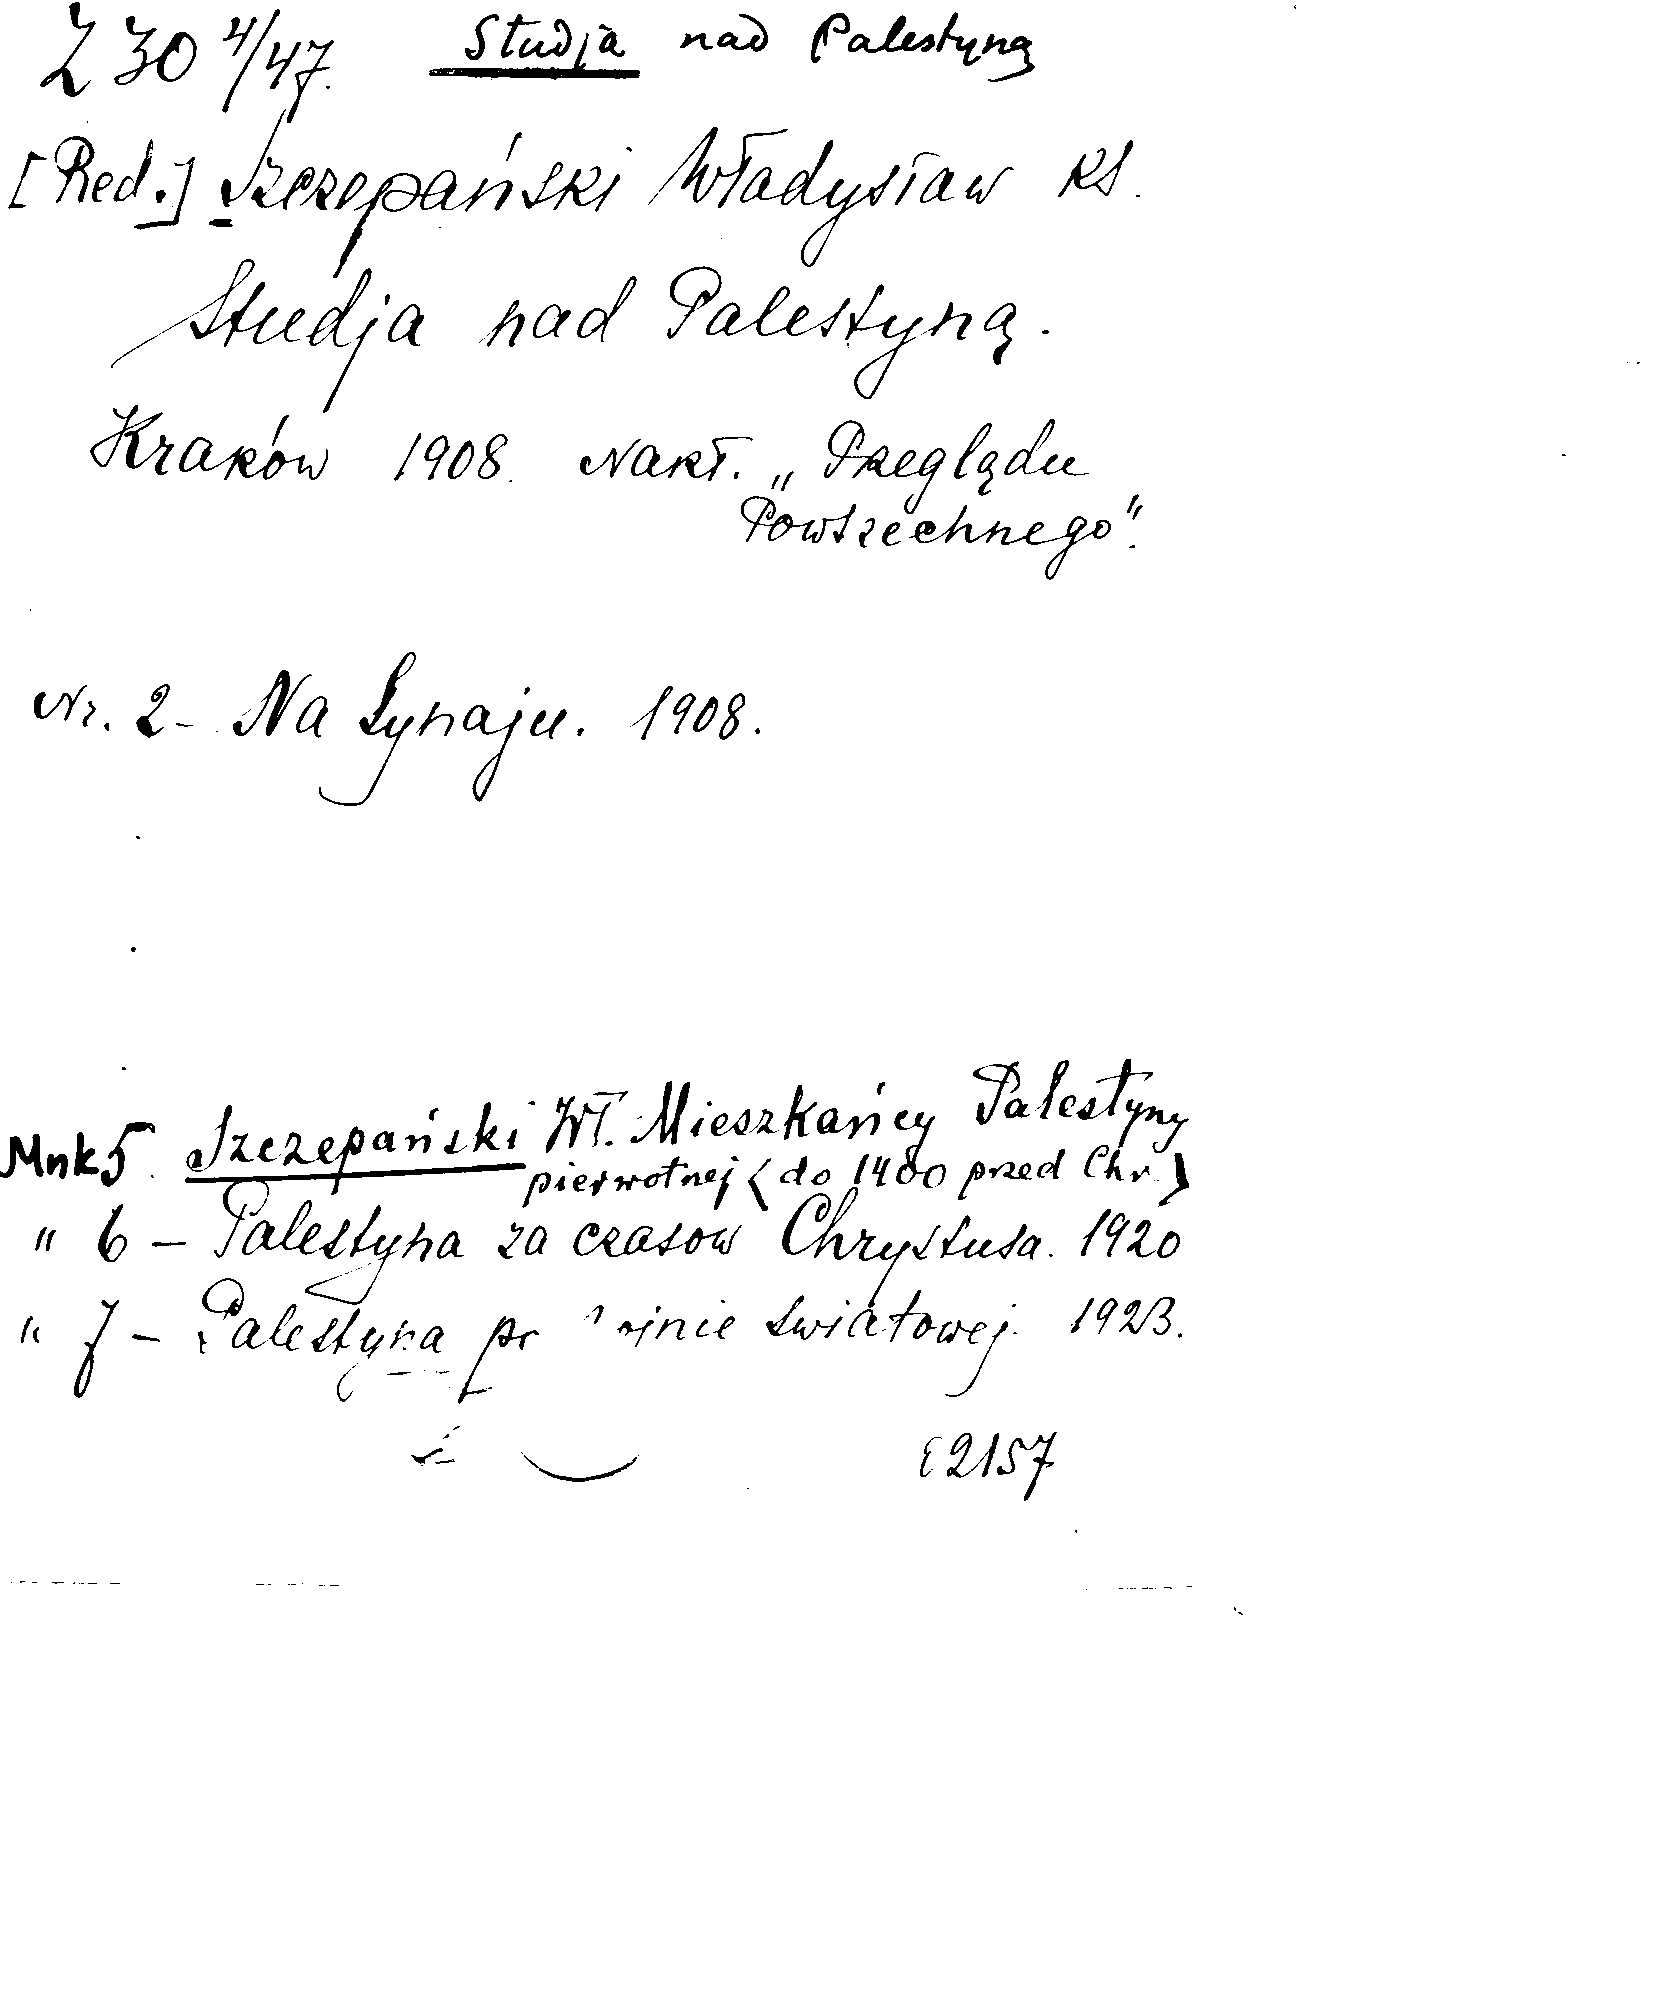 Z 30 4/47. Studja nad Palestyną
[Red.] Szczepański Władysław ks.
Studja nad Palestyną.
Kraków 1908. Nakł. „Przeglądu
Powszechnego".
Nr. 2 - Na Synaju. 1908.
Mnk 5. Szczepański Wł. Mieszkańcy Palestyny
pierwotnej (do 1400 przed Chr.)
" 6 - Palestyna za czasow Chrystusa. 1920
" 7 - Palestyna światowej. 1923.
2157